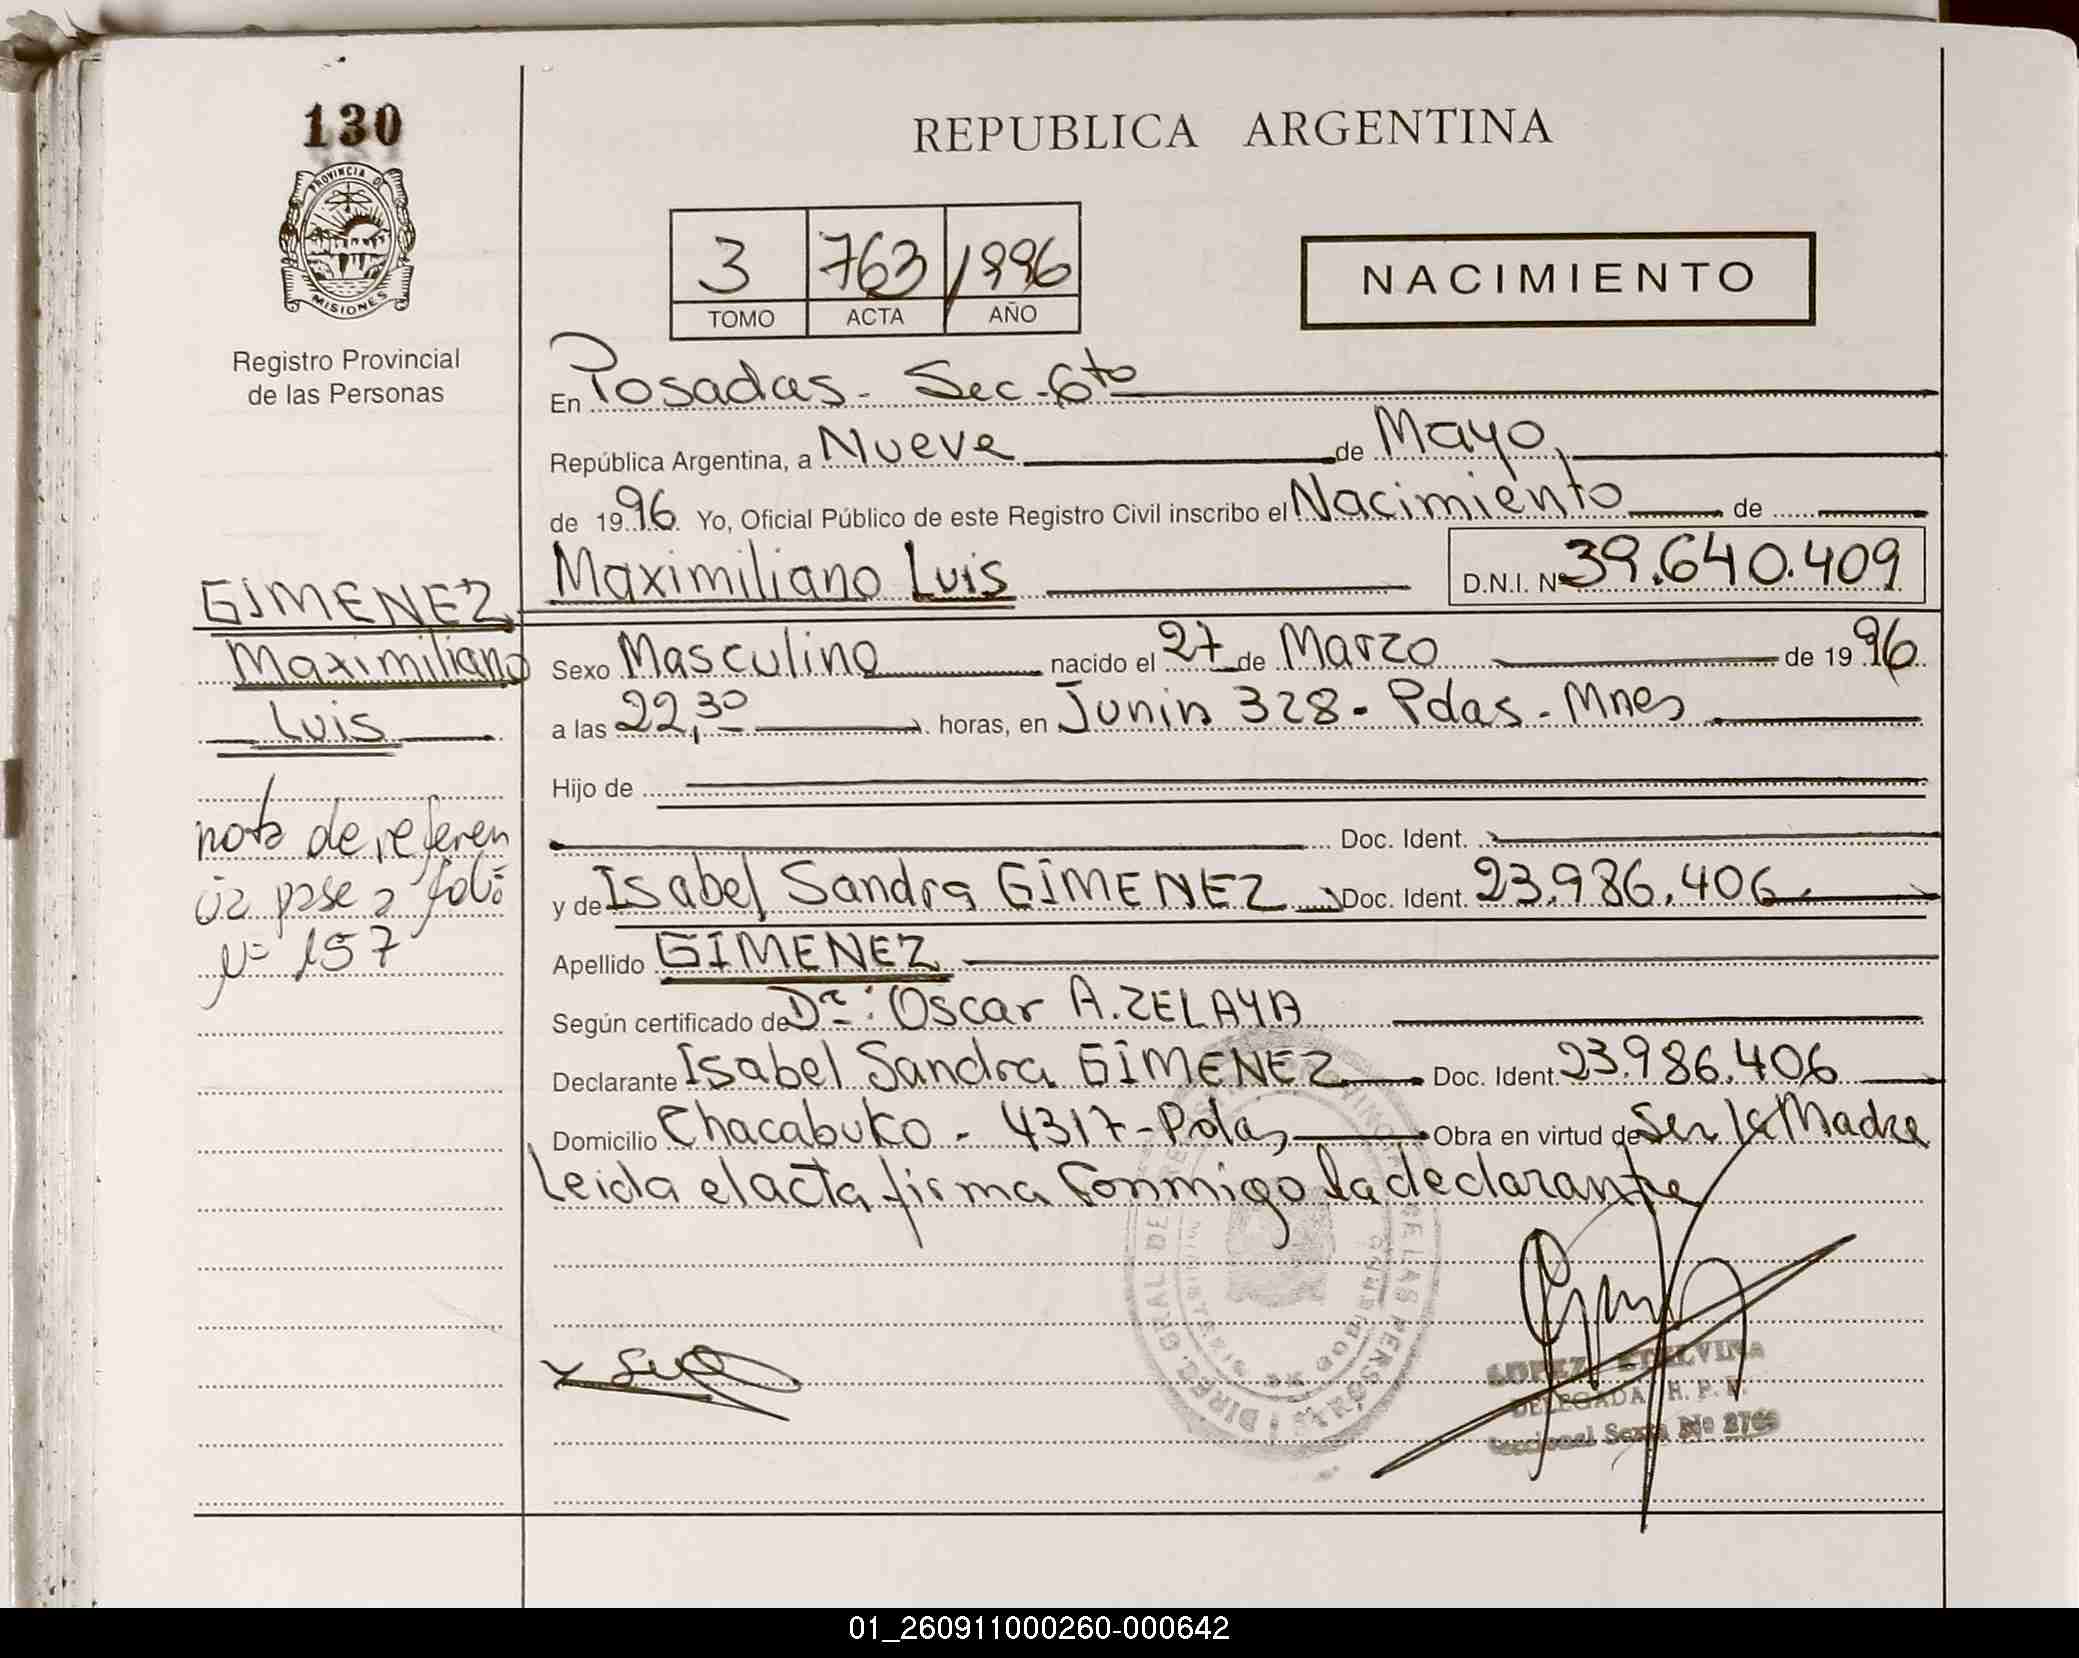 130
PROVINCIA DE
MISIONES
Registro Provincial
de las Personas
GIMENEZ
Maximiliano
Luis
nota de referen
cia pase a folio
Nº 157
REPUBLICA ARGENTINA
3 763 1996
TOMO ACTA AÑO
NACIMIENTO
En Posadas - Sec - 6to
República Argentina, a Nueve de Mayo
de 1996 Yo, Oficial Público de este Registro Civil inscribo el Nacimiento de
Maximiliano Luis D.N.I. Nº 39.640.409
Sexo Masculino nacido el 27 de Marzo de 1996
a las 22,30 horas, en Junin 328 - Pdas - Mnes
Hijo de
Doc. Ident.
y de Isabel Sandra GIMENEZ Doc. Ident. 23.986.406
Apellido GIMENEZ
Según certificado de Dr: Oscar A. ZELAYA
Declarante Isabel Sandra GIMENEZ Doc. Ident. 23.986.406
Domicilio Chacabuko - 4317 - Pdas Obra en virtud de Ser la Madre
Leida el acta firma Conmigo la declarante
LOPEZ ETELVINA
DELEGADA R. P. P.
Seccional Sexta Nº
01_260911000260-000642